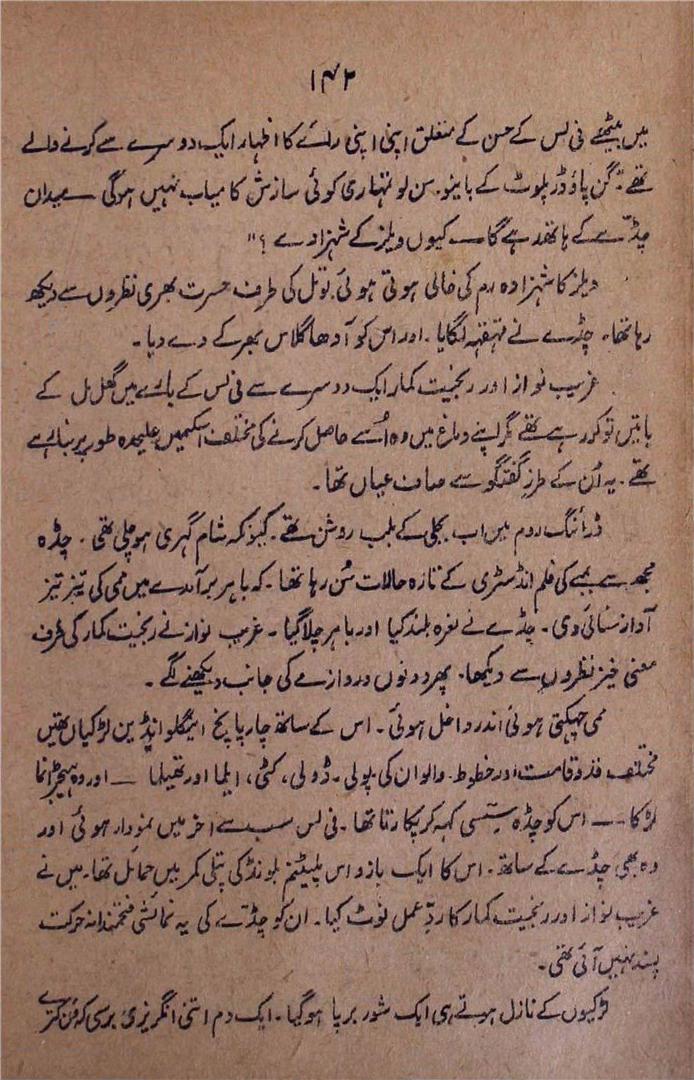 ۱۴۲
میں بیٹھے فی لس کے حسن کے متعلق اپنی اپنی رائے کا اظہار ایک دوسرے سے کرنے والے
تھے۔ "گن پاؤڈر پلوٹ کے بانیو۔ سن لو تمہاری کوئی سازش کامیاب نہیں ہوگی — میدان
چڈّے کے ہاتھ رہے گا — کیوں ویلز کے شہزادے ؟"
ویلز کا شہزادہ رم کی خالی ہوتی ہوئی بوتل کی طرف حسرت بھری نظروں سے دیکھ
رہا تھا۔ چڈے نے قہقہہ لگایا۔ اور اس کو آدھا گلاس بھر کے دے دیا۔
غریب نواز اور رنجیت کمار ایک دوسرے سے فی لس کے بارے میں گھل مل کے
باتیں تو کر رہے تھے مگر اپنے دماغ میں وہ اُسے حاصل کرنے کی مختلف اسکیمیں علیحدہ طور پر بنا رہے
تھے۔ یہ اُن کے طرزِ گفتگو سے صاف عیاں تھا۔
ڈرائنگ روم میں اب بجلی کے بلب روشن تھے۔ کیونکہ شام گہری ہو چلی تھی۔ چڈہ
مجھ سے بمبے کی فلم انڈسٹری کے تازہ حالات سُن رہا تھا۔ کہ باہر برآمدے میں ممی کی تیز تیز
آواز سنائی دی۔ چڈے نے نعرہ بلند کیا اور باہر چلا گیا۔ غریب نواز نے رنجیت کمار کی طرف
معنی خیز نظروں سے دیکھا۔ پھر دونوں دروازے کی جانب دیکھنے لگے۔
ممی چہکتی ہوئی اندر داخل ہوئی۔ اس کے ساتھ چار پانچ اینگلو انڈین لڑکیاں تھیں
مختلف قد و قامت اور خطوط والوان کی۔ پولی۔ ڈولی، کٹی، ایلما اور تھیلما — اور وہ ہیجڑا نما
لڑکا — اس کو چڈہ سِسّی کہہ کر پکارتا تھا۔ فی لس سب سے آخر میں نمودار ہوئی اور
وہ بھی چڈے کے ساتھ۔ اس کا ایک بازو اس پلیٹنم بلونڈ کی پتلی کمر میں حمائل تھا۔ میں نے
غریب نواز اور رنجیت کمار کا ردِّ عمل نوٹ کیا۔ ان کو چڈّے کی یہ نمائشی فتحمندانہ حرکت
پسند نہیں آئی تھی۔
لڑکیوں کے نازل ہوتے ہی ایک شور برپا ہو گیا۔ ایک دم اتنی انگریزی برسی کہ ون کترے